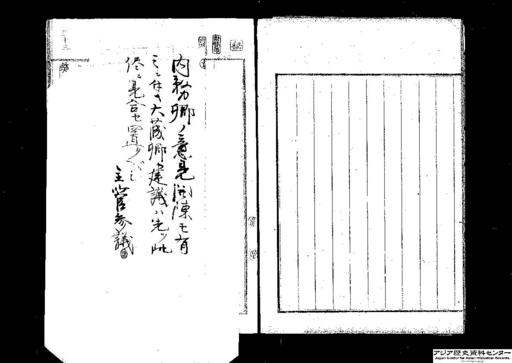 内務卿ノ意見開陳モ有
之ニ付キ大蔵卿建議ハ先ツ此
侭ニ見合セ置クベシ
主管参議
アジア歴史資料センター
Japan Center for Asian Historical Records